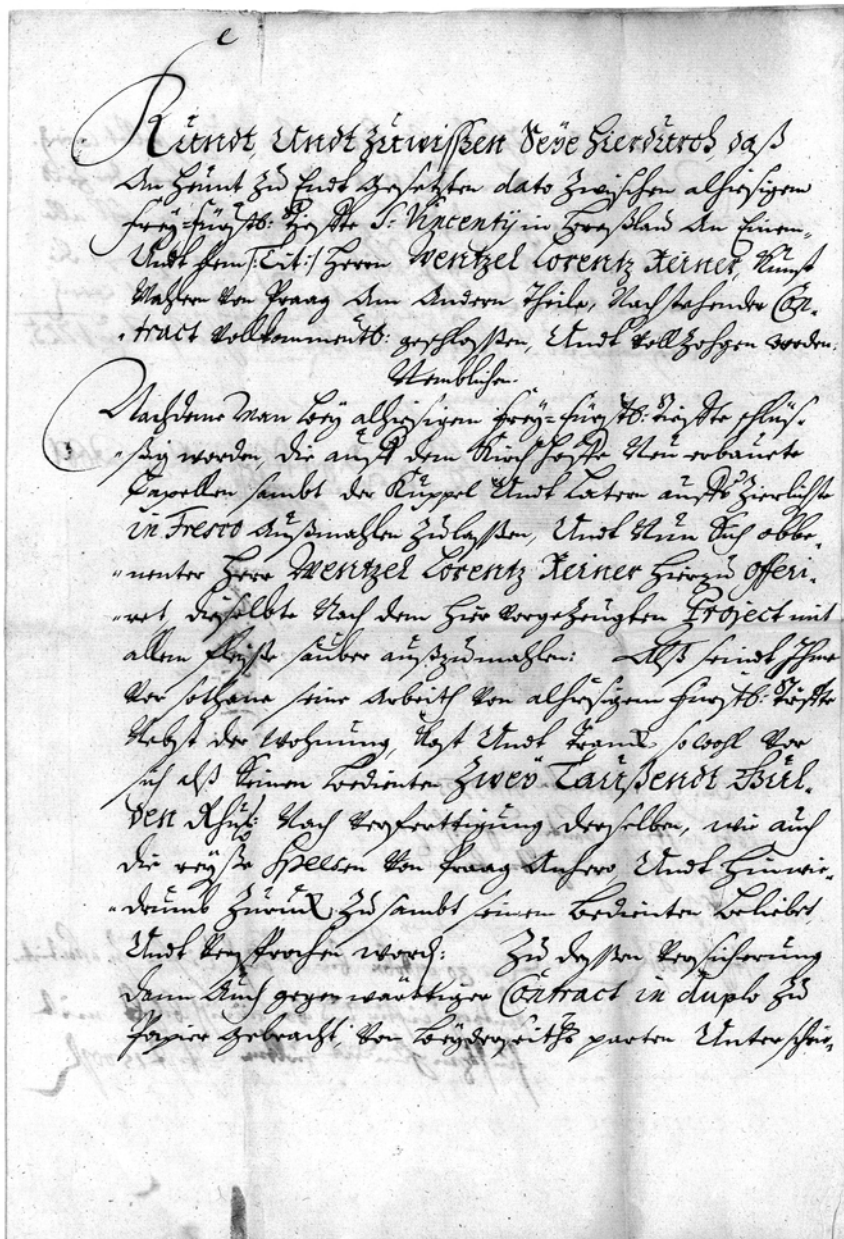 Kundt, Undt Zuwißen Seÿe hierdurch, daß
An heünt zu Endt gesetzten dato zwischen alhiesigem
Freÿ-fürstl: Stiffte S: Vincentÿ in Breßlau An Einem-
Undt dem /:Tit:/ Herrn Wentzel Lorentz Reiner, Kunst
Mahlern von Praag Am Andern Theile, Nachstehender Con-
-tract vollkommentl: geschloßen, Undt vollzohgen worden:
Nemblichen.
Nachdeme Man beÿ alhiesigem freÿ-fürstl: Stiffte schlüs-
-ßig worden, die auff dem Kirchhoffe Neu erbauete
Capellen sambt der Kuppel Undt Latern auffs Zierlichste
in Fresco Außmahlen zulaßen, Undt Nun Sich obbe-
-nenter Herr Wentzel Lorentz Reiner hierzu offeri-
-ret dieselbte Nach dem hier vorgezeugten Project mit
allem fleiße sauber außzumahlen: Alß seindt Ihme
vor sothane seine Arbeith von alhiesigem fürstl: Stiffte
Nebst der Wohnung, Kost Undt Tranck so wohl vor
sich alß Seinen Bedienten Zweÿ Taußendt Gül-
den Rhns: Nach Verfertigung derselben, wie auch
die reÿße Spesen von Praag Anhero, Undt hinwie-
-drumb Zuruck, Zusambt seinem Bedienten beliebet,
Undt versprochen word: Zu deßen Versicherung
dann Auch gegenwärttiger Contract in duplo zu
Papier gebracht, von beÿderseiths parten Unterschrie-